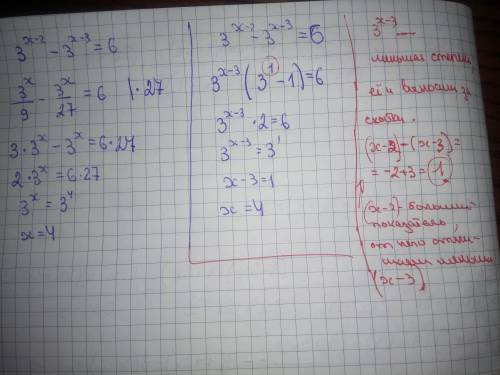 3^{x-2} - 3^{x-3} = 6
3^x/9 - 3^x/27 = 6 | · 27
3 · 3^x - 3^x = 6 · 27
2 · 3^x = 6 · 27
3^x = 3^4
x = 4
3^{x-2} - 3^{x-3} = 6
3^{x-3} (3^1 - 1) = 6
3^{x-3} · 2 = 6
3^{x-3} = 3^1
x - 3 = 1
x = 4
3^{x-3} —
меньшая степень,
её и выносим за
скобки.
(x-2) - (x-3) =
= -2+3 = 1
(x-2) - больший
показатель,
от него отни-
маем меньший
(x-3)